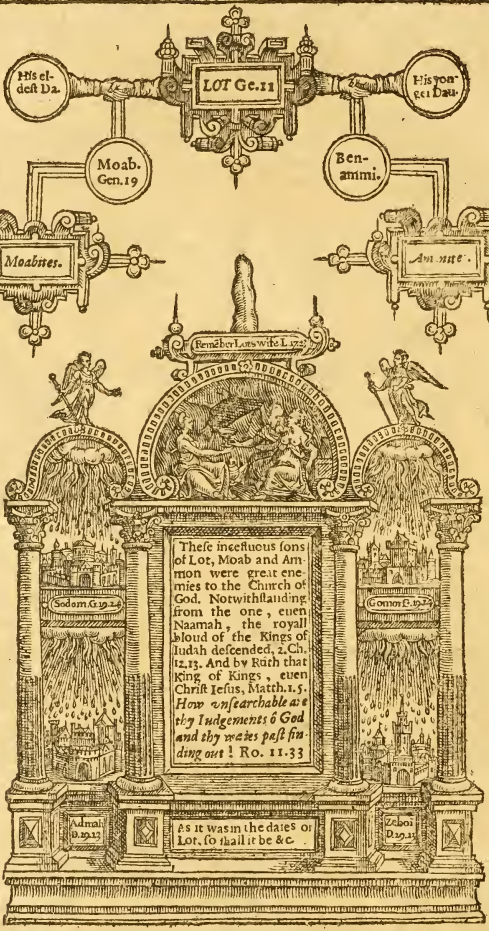 His el-
dest Da.
LOT Ge.11
His yon-
ger Dau.
Moab.
Gen.19
Ben-
ammi.
Moabites.
Remēber Lots wife L.17.
These incestuous sons
of Lot, Moab and Am-
mon were great ene-
mies to the Church of
God. Notwithstanding
from the one, euen
Naamah, the royall
bloud of the Kings of
Iudah descended, 2.Ch.
12.13. And by Ruth that
King of Kings, euen
Christ Iesus, Matth.1.5.
How vnsearchable are
thy Iudgements ô God
and thy waies past fin-
ding out! Ro. 11.33
Sodom.G.19.24
Gomor.G.19.24
Admah
D.29.23
As it was in the daies of
Lot, so shall it be &c.
Zeboi
D.29.23